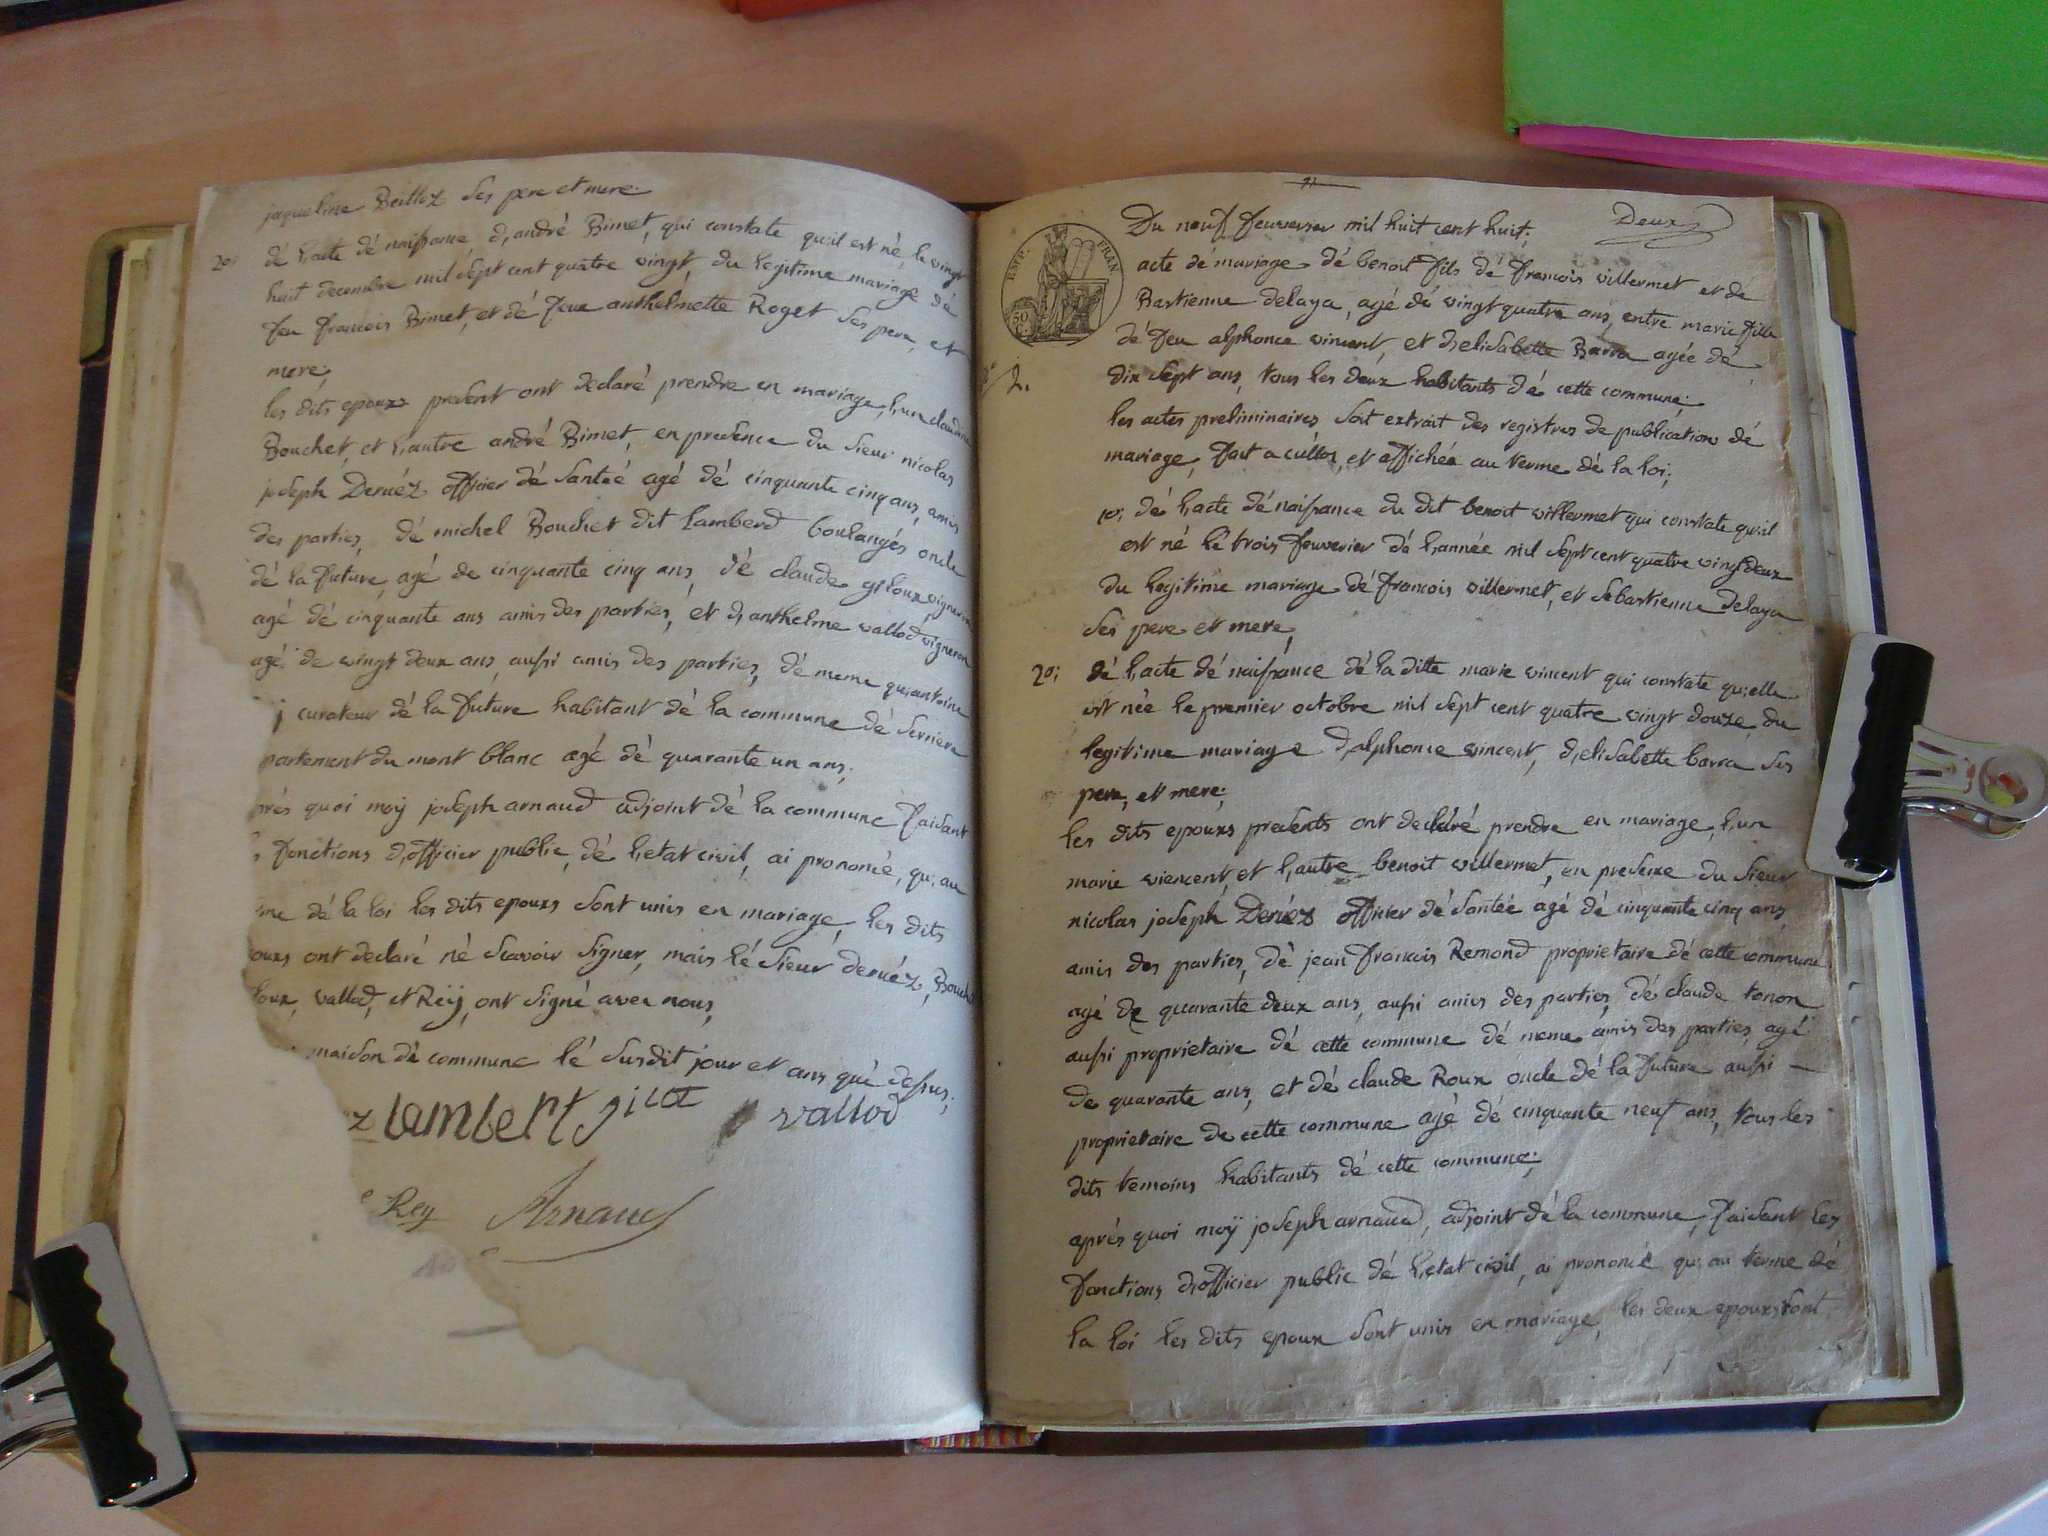 jaqueline Beilloz ses pere et mere.
20; dé l,acte dé naissance d,andré Bimet, qui constate qu;il est né, le vingt
huit decembre mil sept cent quatre vingt, du legitime mariage dé
feu francois Bimet, et dé feue anthelmette Roget ses pere, et
mere;
les dits epoux present ont declaré prendre en mariage, l,un claudine
Bouchet, et l,autre andré Bimet, en presence du sieur nicolas
joseph Deruéz officier dé santéé agé dé cinquante cinq ans, amis
des parties, dé michel Bouchet dit lamberd boulangés oncle
dé la future, agé de cinquante cinq ans, dé claude giloux vigneron
agé dé cinquante ans amis des parties, et d,anthelme vallod vigneron
agé de wingt deux ans, aussi amis des parties, dé meme qu;antoine
j curateur dé la future habitant dé la commune dé serriere
partement du mont blanc agé dé quarante un ans;
près quoi moÿ joseph arnaud adjoint dé la commune faisant
s fonctions d,officier public, dé l,etat civil, ai prononcé, qu;au
me dé la loi les dits epouxs sont unis en mariage, les dits
ouxs ont declaré né scavoir signer, mais lé sieur deruéz, Bouch
loux, vallod, et Reÿ, ont signé avec nous,
maison dé commune lé susdit jour et ans qué dessus;
z lambert gilot vallod
Rey Arnaud
11
Du neuf feuverier mil huit cent huit; Deux
EMP. FRAN
50
C.
acte dé mariage dé benoit fils dé francois willermet et dé
Bastienne delaya, agé dé vingt quatre ans, entre marie fille
dé feu alphonce vincent, et d,elisabette Barra agée dé
2.
dix sept ans, tous les deux habitants dé cette commune;
les actes preliminaires sont extrait des registres de publications dé
mariage, fait a culloz, et affichéa au terme dé la loi;
10; dé l,acte dé naissance du dit benoit willermet qui constate qu;il
est né lé trois feuverier dé l,année mil sept cent quatre wingt deux
du legitime mariage dé francois willermet, et sebastienne delaya
ses pere et mere,
20; dé l,acte dé naissance dé la ditte marie vincent qui constate qu;elle
est née le premier octobre mil sept cent quatre wingt douze, du
legitime mariage d,alphonce wincent, d,elisabette barra ses
pere, et mere;
les dits epouxs presents ont declaré prendre en mariage, l,un
marie wiencent, et l,autre benoit willermet, en presence du sieur
nicolas joseph Deruéz officier dé santéé agé dé cinquante cinq ans,
amis des parties, dé jean francois Remond proprietaire dé cette commune
agé de quarante deux ans, aussi amis des parties, dé claude tonon
aussi proprietaire dé cette commune dé meme amis des parties, agé
de quarante ans, et dé claude Roux oncle dé la future aussi —
proprietaire de cette commune agé dé cinquante neuf ans, tous les
dits temoins habitants dé cette commune;
après quoi moÿ joseph arnaud, adjoint dé la commune, faisant les
fonctions d,officier public dé l,etat civil, ai prononcé qu;au terme dé
la loi les dits epoux sont unis en mariage, les deux epouxs ont